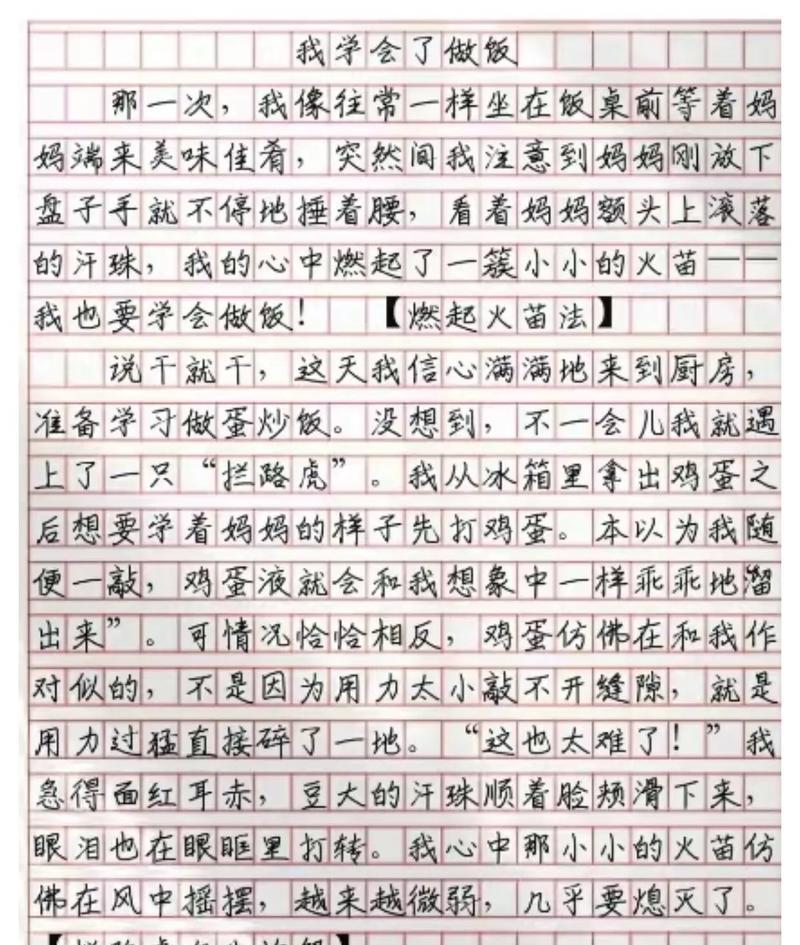 我学会了做饭
那一次，我像往常一样坐在饭桌前等着妈
妈端来美味佳肴，突然间我注意到妈妈刚放下
盘子手就不停地捶着腰，看着妈妈额头上滚落
的汗珠，我的心中燃起了一簇小小的火苗——
我也要学会做饭！ 【燃起火苗法】
说干就干，这天我信心满满地来到厨房，
准备学习做蛋炒饭。没想到，不一会儿我就遇
上了一只“拦路虎”。我从冰箱里拿出鸡蛋之
后想要学着妈妈的样子先打鸡蛋。本以为我随
便一敲，鸡蛋液就会和我想象中一样乖乖地溜
出来”。可情况恰恰相反，鸡蛋仿佛在和我作
对似的，不是因为用力太小敲不开缝隙，就是
用力过猛直接碎了一地。“这也太难了！”我
急得面红耳赤，豆大的汗珠顺着脸颊滑下来，
眼泪也在眼眶里打转。我心中那小小的火苗仿
佛在风中摇摆，越来越微弱，几乎要熄灭了。